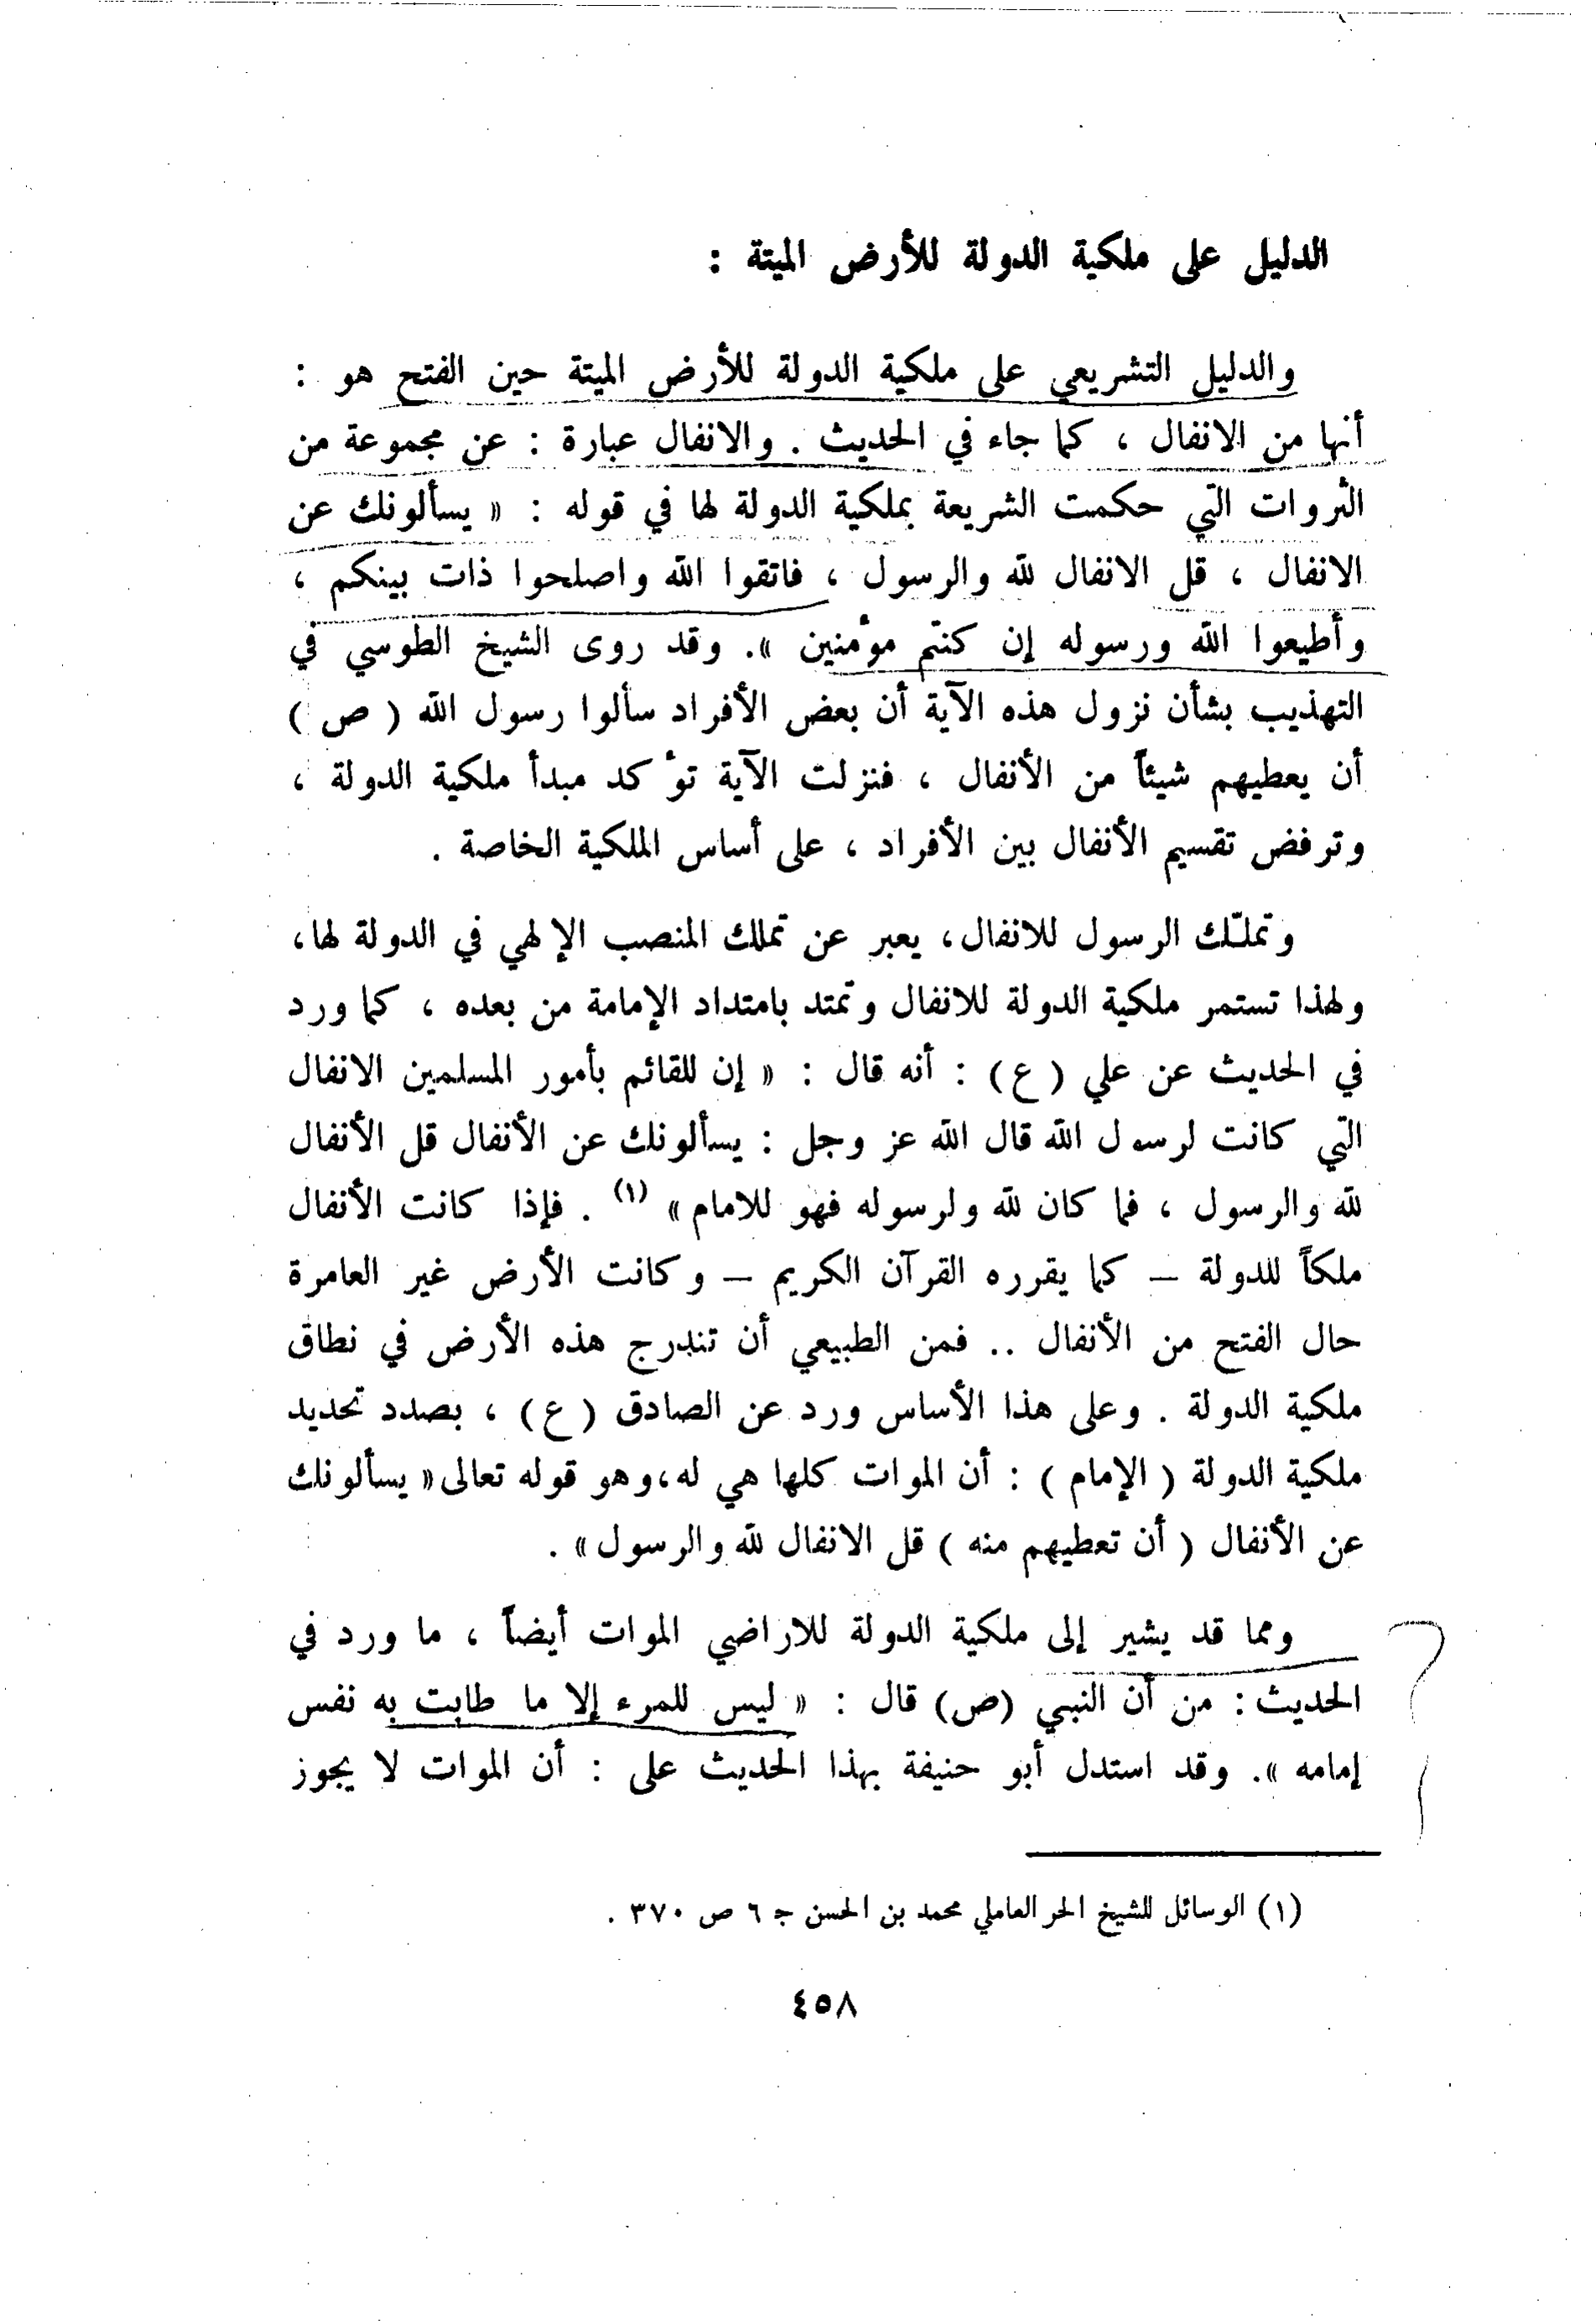 الدليل على ملكية الدولة للأرض الميتة :
والدليل التشريعي على ملكية الدولة للأرض الميتة حين الفتح هو :
أنها من الانفال ، كما جاء في الحديث . والانفال عبارة : عن مجموعة من
الثروات التي حكمت الشريعة بملكية الدولة لها في قوله : « يسألونك عن
الانفال ، قل الانفال لله والرسول ، فاتقوا الله واصلحوا ذات بينكم ،
وأطيعوا الله ورسوله إن كنتم مؤمنين ». وقد روى الشيخ الطوسي في
التهذيب بشأن نزول هذه الآية أن بعض الأفراد سألوا رسول الله ( ص )
أن يعطيهم شيئاً من الأنفال ، فنزلت الآية تؤكد مبدأ ملكية الدولة ،
وترفض تقسيم الأنفال بين الأفراد ، على أساس الملكية الخاصة .
وتملّك الرسول للانفال، يعبر عن تملك المنصب الإلهي في الدولة لها،
ولهذا تستمر ملكية الدولة للانفال وتمتد بامتداد الإمامة من بعده ، كما ورد
في الحديث عن علي ( ع ) : أنه قال : « إن للقائم بأمور المسلمين الانفال
التي كانت لرسول الله قال الله عز وجل : يسألونك عن الأنفال قل الأنفال
لله والرسول ، فما كان لله ولرسوله فهو للامام » (١) . فإذا كانت الأنفال
ملكاً للدولة – كما يقرره القرآن الكريم – وكانت الأرض غير العامرة
حال الفتح من الأنفال .. فمن الطبيعي أن تندرج هذه الأرض في نطاق
ملكية الدولة . وعلى هذا الأساس ورد عن الصادق ( ع ) ، بصدد تحديد
ملكية الدولة ( الإمام ) : أن الموات كلها هي له،وهو قوله تعالى « يسألونك
عن الأنفال ( أن تعطيهم منه ) قل الانفال لله والرسول » .
ومما قد يشير إلى ملكية الدولة للاراضي الموات أيضاً ، ما ورد في
الحديث : من أن النبي (ص) قال : « ليس للمرء إلا ما طابت به نفس
إمامه ». وقد استدل أبو حنيفة بهذا الحديث على : أن الموات لا يجوز
(١) الوسائل للشيخ الحر العاملي محمد بن الحسن ج ٦ ص ٣٧٠ .
٤٥٨